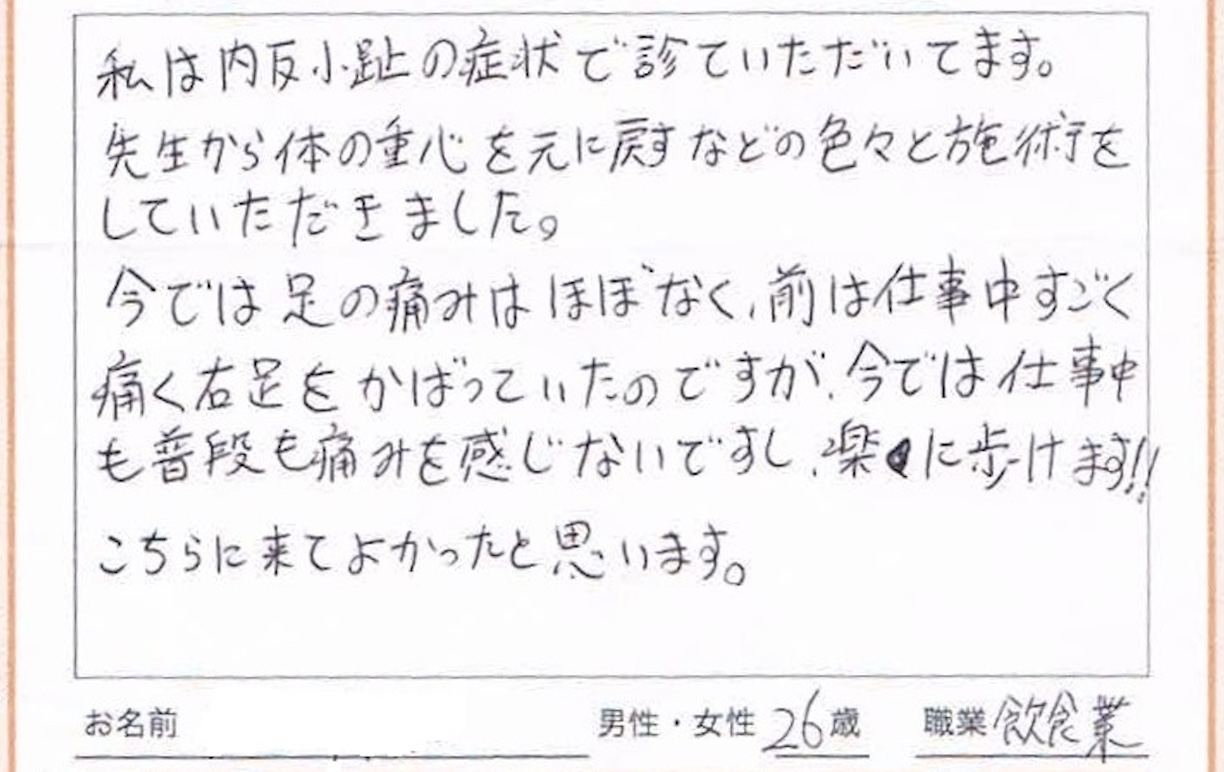 私は内反小趾の症状で診ていただいてます。
先生から体の重心を元に戻すなどの色々と施術を
していただきました。
今では足の痛みはほぼなく、前は仕事中すごく
痛く右足をかばっていたのですが、今では仕事中
も普段も痛みを感じないですし、楽に歩けます!!
こちらに来てよかったと思います。
お名前 男性・女性 26歳 職業 飲食業